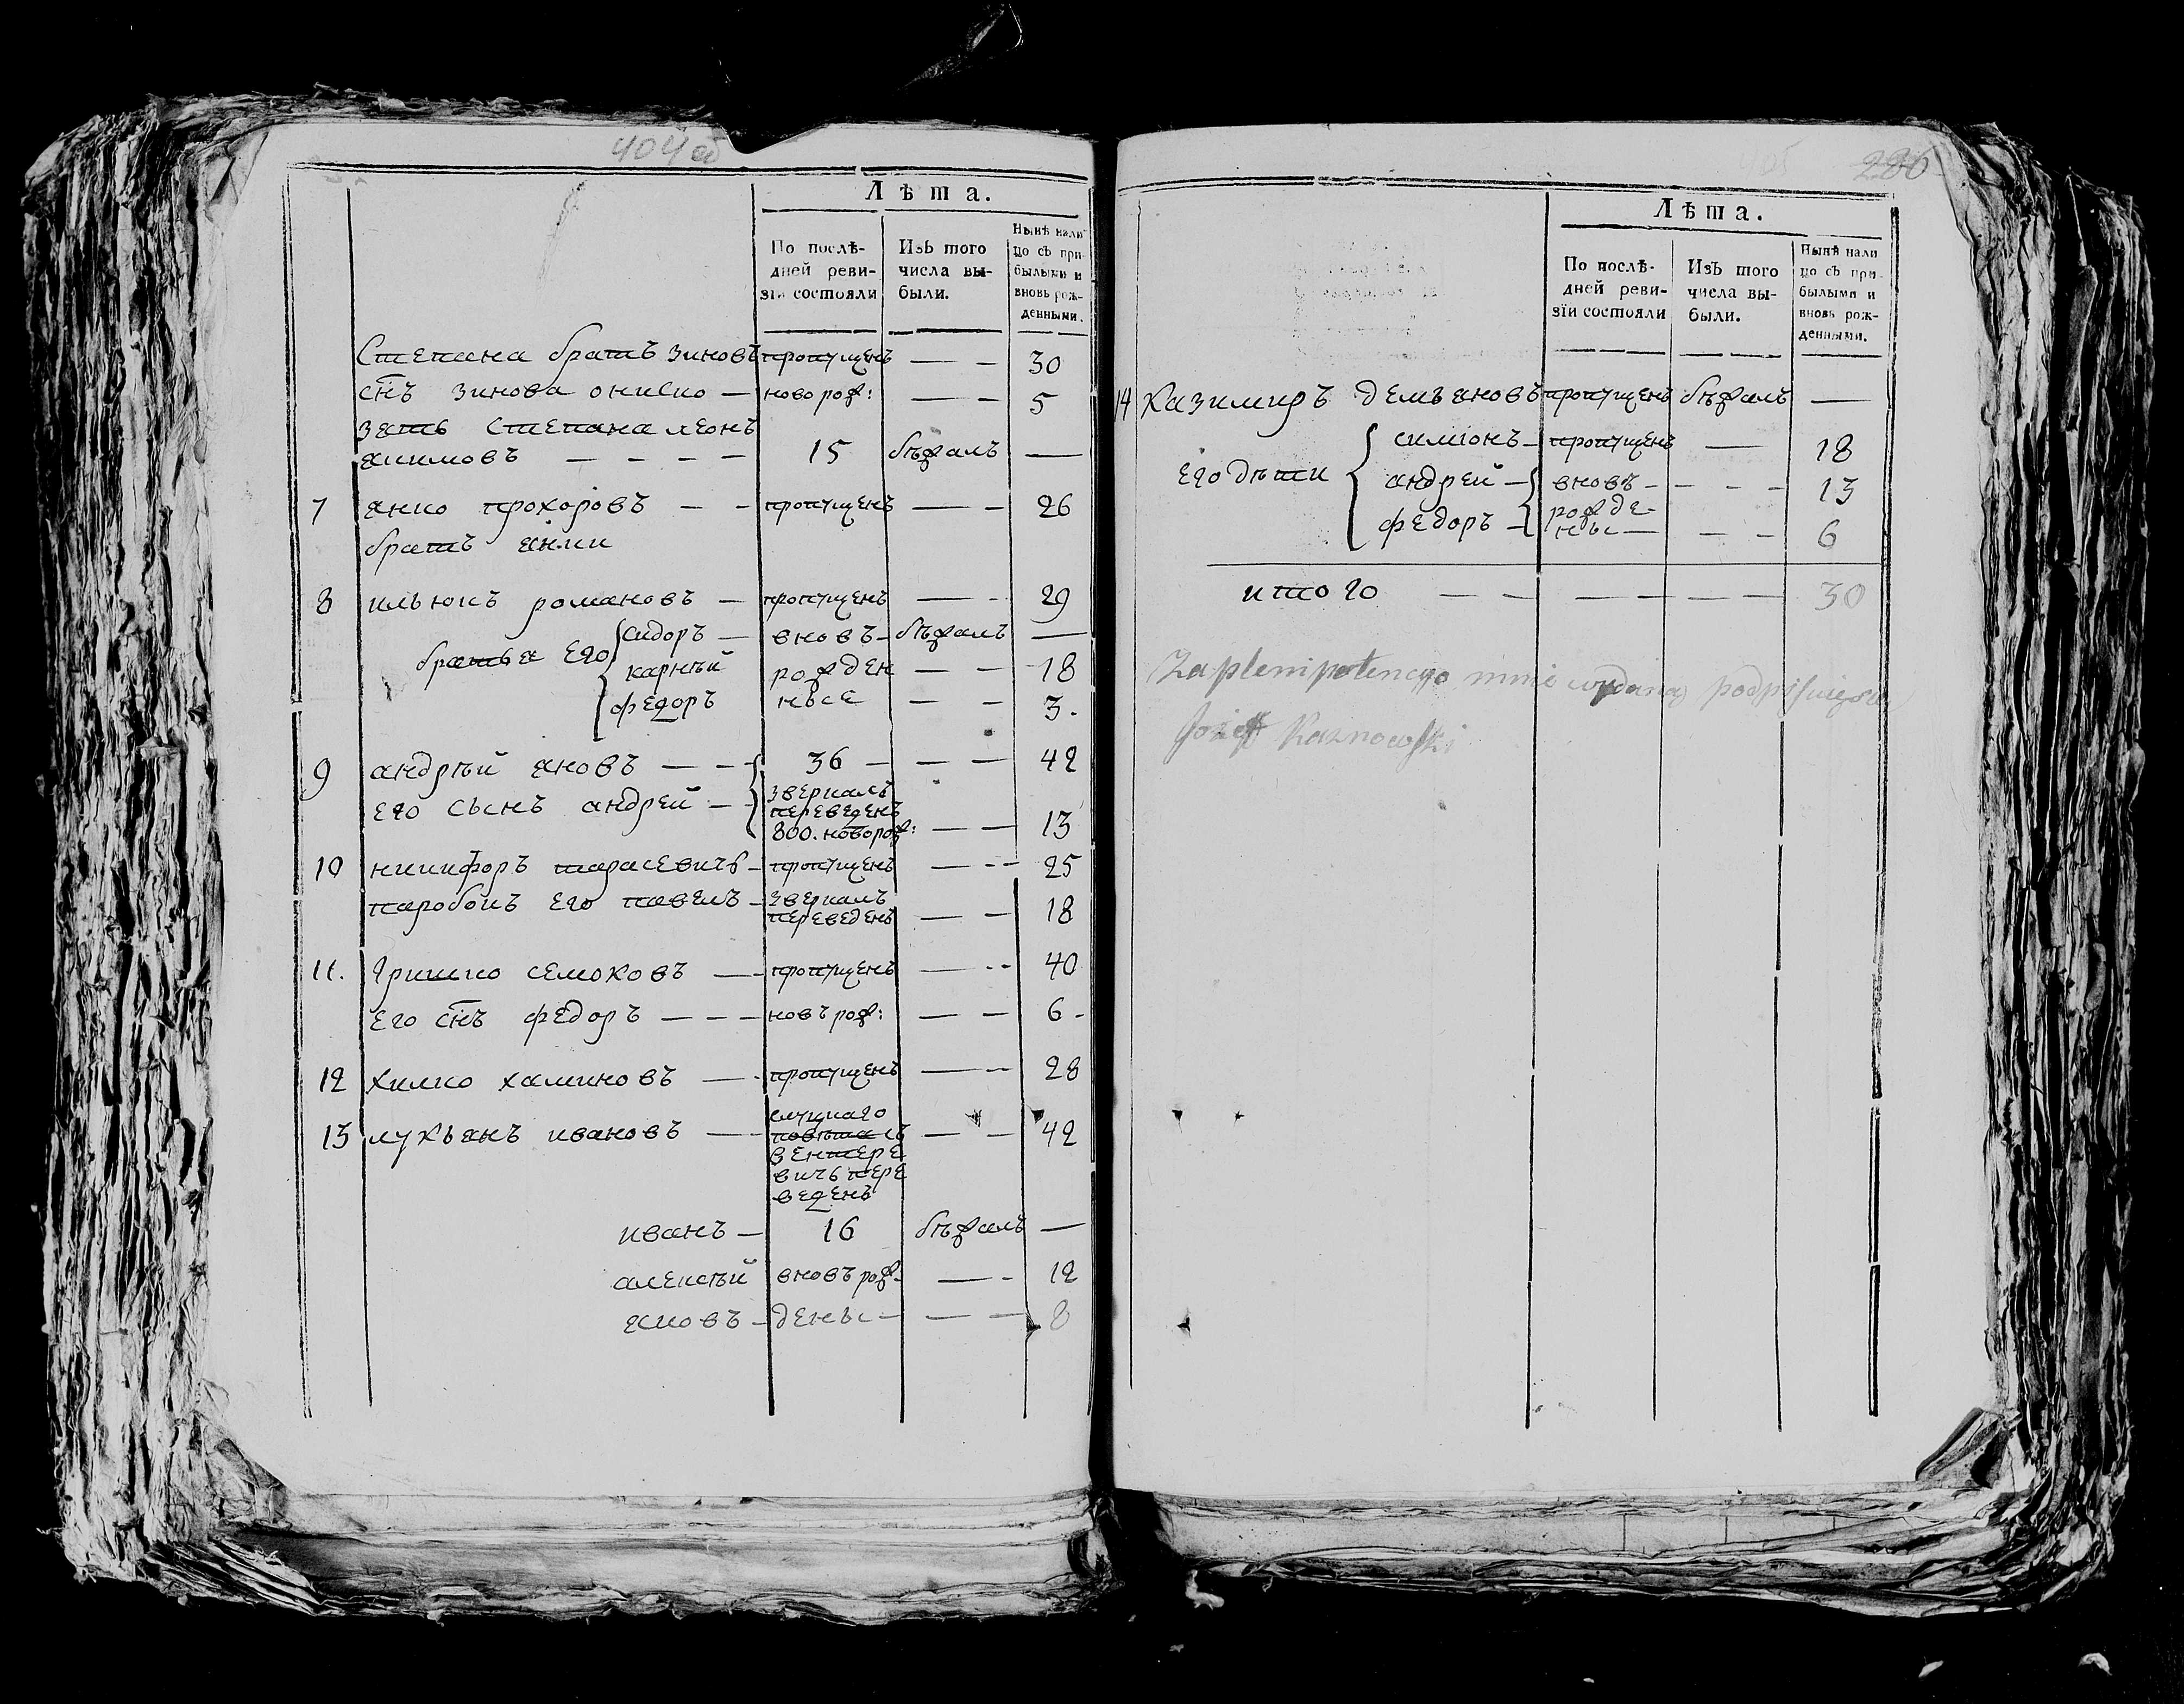 404 об
Лѣта.
По послѣ-
дней реви-
зіи состояли
Изъ того
числа вы-
были.
Нынѣ нали
цо съ при-
былыми и
вновь рож-
денными.
Степана братъ зиновъ пропущенъ — - 30
сн҃ъ зинова ониско — новорож: — - 5
зять степана леонъ
якимовъ - - - - 15 бѣжалъ —
7 янко прохоровъ - - пропущенъ — - 26
братъ янки
8 ильюкъ романовъ — пропущенъ — - 29
братья его
сидоръ — вновъ- бѣжалъ —
карнѣй рожден — - 18
федоръ ныe - - 3.
9 андрѣй яновъ - - - 36 - - - 42
его сынъ андрей - -
зверкалъ
переведенъ
800. новорож: — - 13
10 никифоръ тарасевичъ - пропущенъ — - - 25
паробокъ его павелъ - зверкалъ
переведенъ — - 18
11. Гришко семоковъ — - пропущенъ — - - 40
его сн҃ъ федоръ - - - новъ рож: — - 6 -
12 химко халимовъ — - пропущенъ — - - 28
13 лукьянъ ивановъ — -
слуцкаго
повѣта съ
вентере
вичь пере
веденъ
— - 42
иванъ - 16 бѣжалъ —
алексѣй вновъ рож- — - 12
яковъ - дены - - - 8
286
Лѣта.
По послѣ-
дней реви-
зіи состояли
Изъ того
числа вы-
были.
Нынѣ нали
цо съ при-
былыми и
вновь рож-
денными.
14 Казимиръ демьяновъ пропущенъ бѣжалъ —
его дѣти
симіонъ - пропущенъ — 18
андрей - вновъ - - - - 13
федоръ - рожде-
ны — - - 6
итого - - - - - - - 30
Za plenipotencyo mnie wydaną podpisuię się
Jozeff Kaznowski